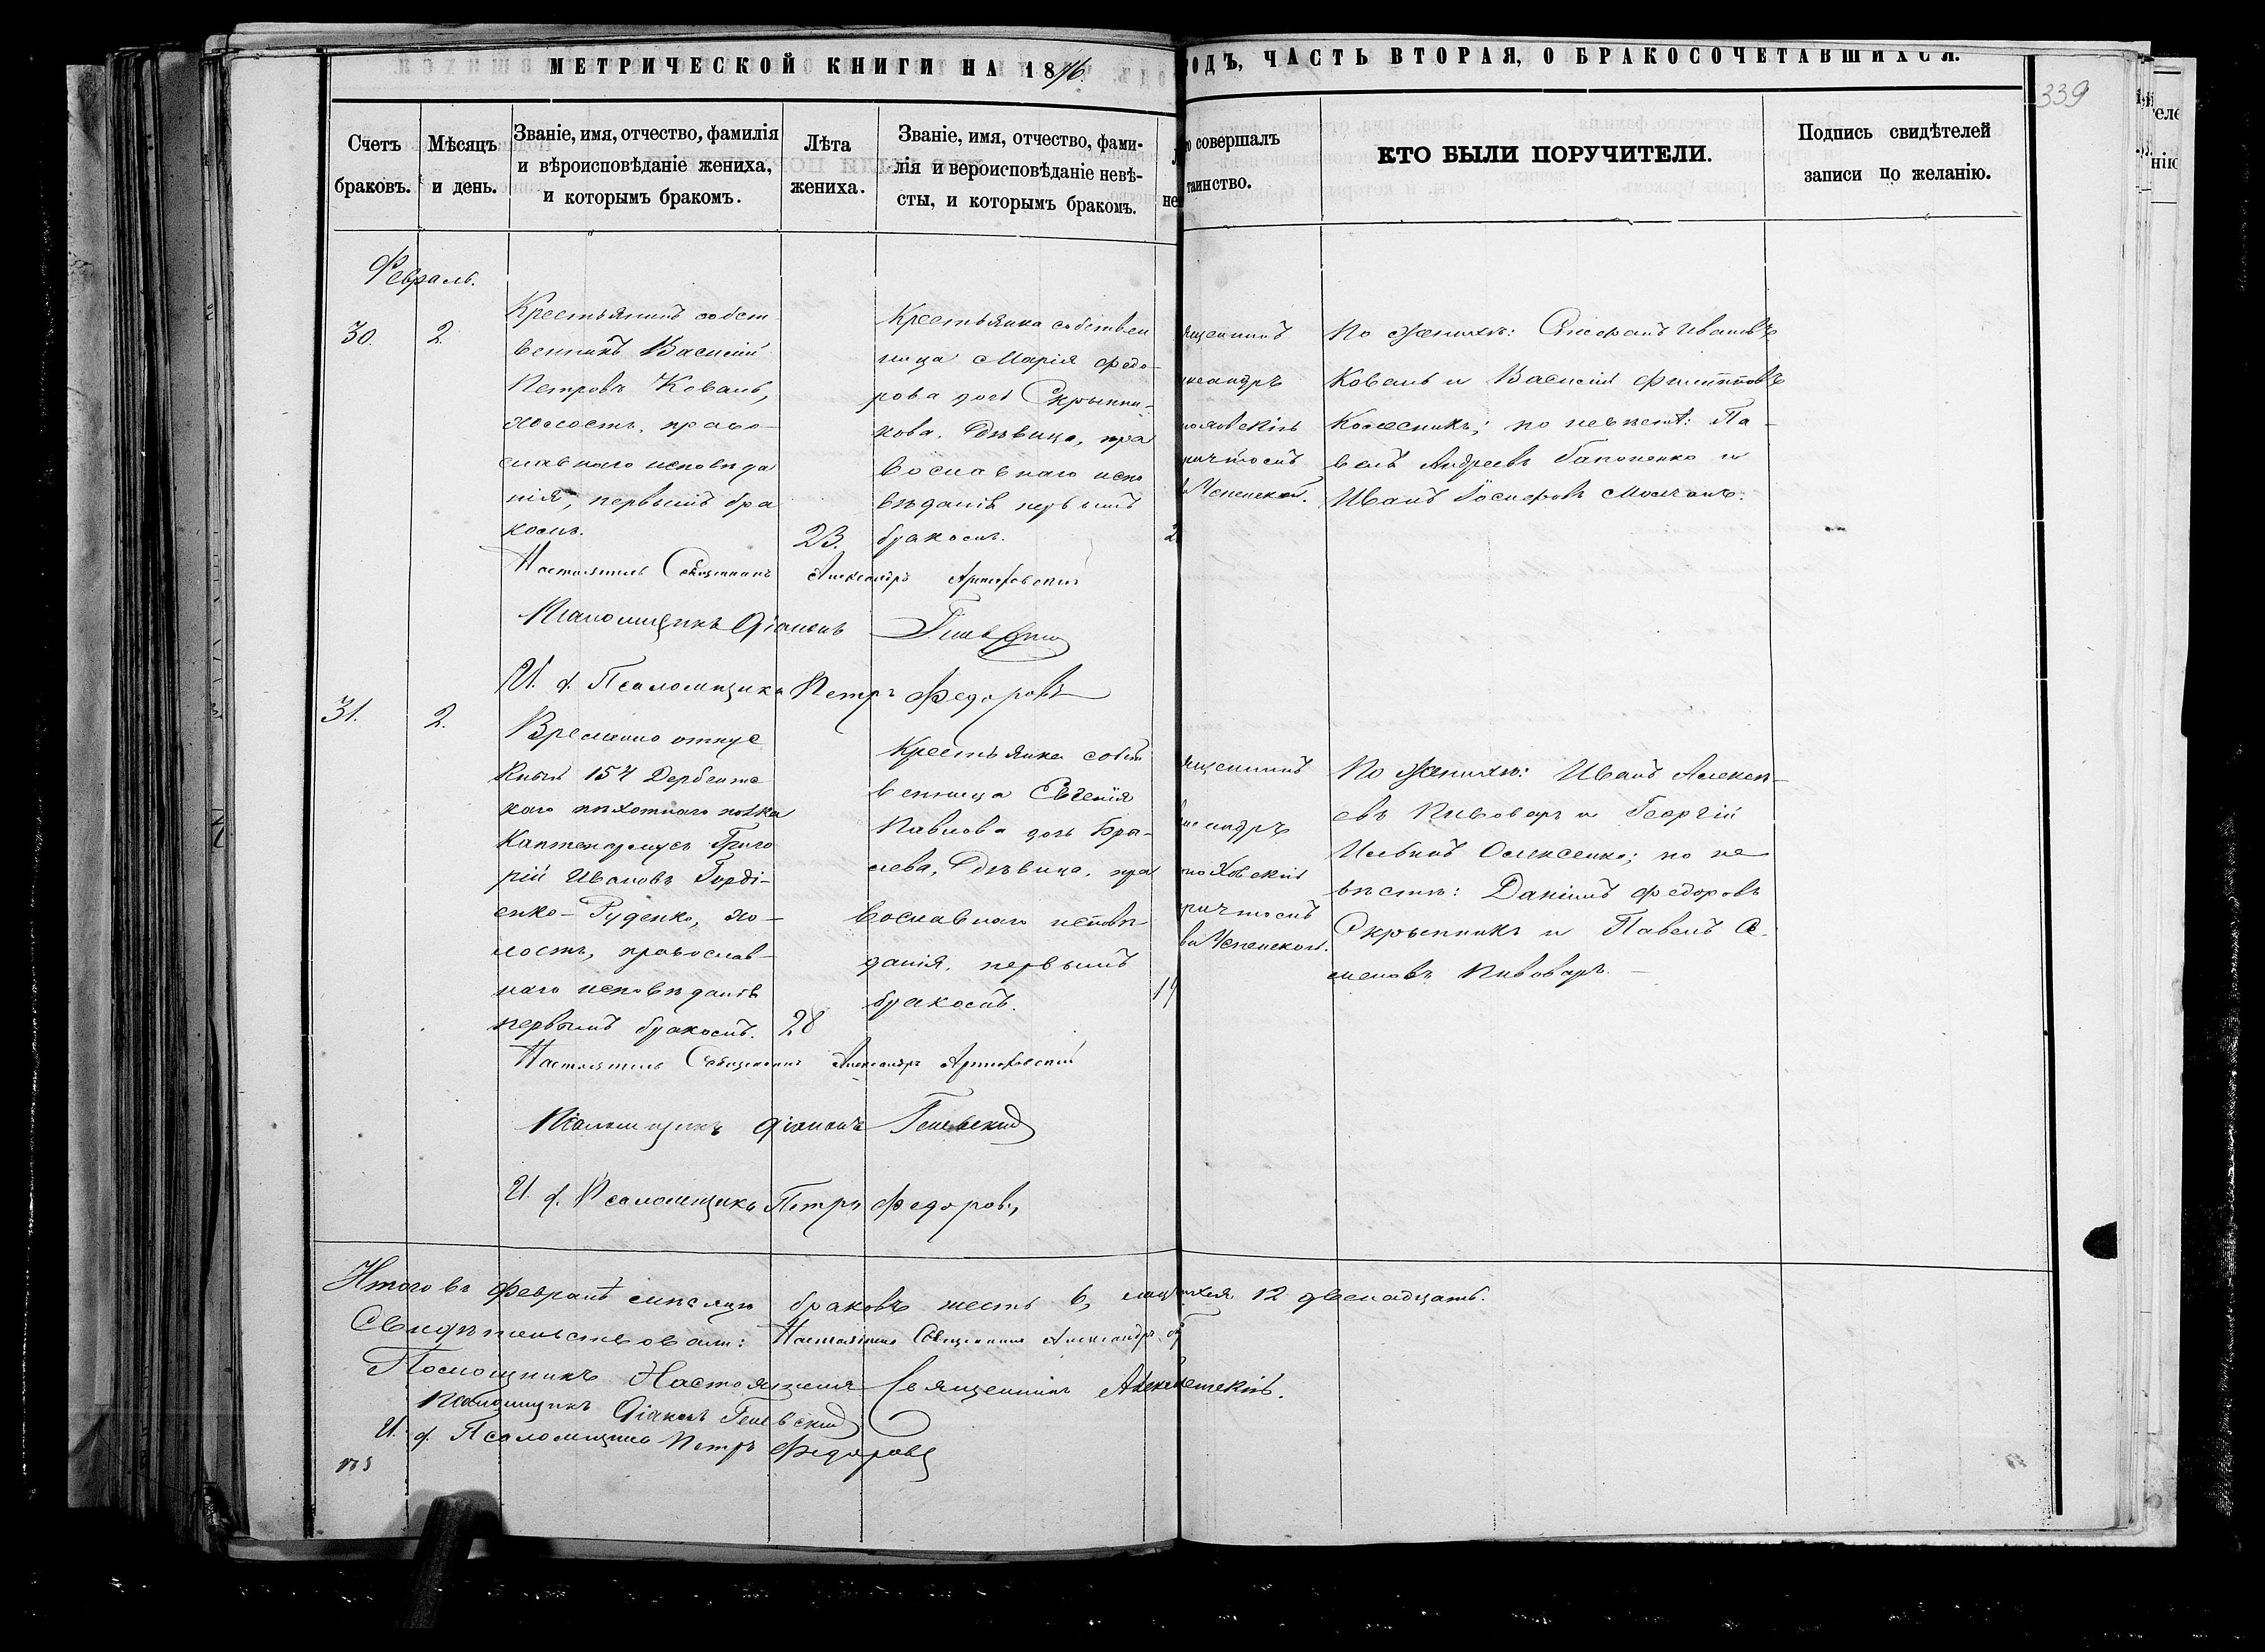 МЕТРИЧЕСКОЙ КНИГИ НА 1876
ОДЪ, ЧАСТЬ ВТОРАЯ, О БРАКОСОЧЕТАВШИХСЯ.
339
Счетъ браковъ.
Мѣсяцъ и день.
Званіе, имя, отчество, фамилія
и вѣроисповѣданіе жениха,
и которымъ бракомъ.
Лѣта
жениха.
Званіе, имя, отчество, фами-
лія и вероисповѣданіе невѣ-
сты, и которымъ бракомъ.
совершалъ
таинство.
КТО БЫЛИ ПОРУЧИТЕЛИ.
Подпись свидѣтелей
записи по желанію.
Февраль.
30.
2.
Крестьянинъ собст
венникъ Василій
Петровъ Коваль,
холостъ, право-
славнаго исповѣда
нія, первымъ бра
комъ.
23.
Крестьянка собствен
ница Марія Федо-
рова дочь Скрынни-
кова, дѣвица, пра
вославнаго испо
вѣданія первымъ
бракомъ.
2
ященникъ
ександръ
юховскій
причтомъ
Успенской.
По женихѣ: Стефанъ Ивановъ
Коваль и Василій Филипповъ
Колесникъ; по невѣстѣ: Па-
велъ Андреевъ Гапоненко и
Иванъ Іосифовъ Молчанъ.
Настоятель Священникъ Александръ Артюховскій
Псаломщикъ Діаконъ
И. д. Псаломщика Петръ Федоровъ
31.
2.
Временно отпус
кный 154 Дербентс
каго пѣхотнаго полка
Каптенармусъ Григо
рій Ивановъ Горді-
енко-Руденко, хо-
лостъ, православ-
наго исповѣданія
первымъ бракомъ.
28
Крестьянка собст
венница Евгенія
Павлова дочь
дѣвица, пра
вославнаго исповѣ
данія, первымъ
бракомъ.
19
ященникъ
ександръ
юховскій
причтомъ
Успенской.
По женихѣ: Иванъ Алексѣ-
евъ Пивоваръ и Георгій
Ильинъ Олексенко; по не
вѣстѣ: Даніилъ Федоровъ
Скрынникъ и Павелъ Се-
меновъ Пивоваръ.
Настоятель Священникъ Александръ Артюховскій
Псаломщикъ Діаконъ
И. д. Псаломщика Петръ Федоровъ
Итого въ Февралѣ мѣсяцѣ браковъ шесть 6, 12 двенадцать.
Свидѣтельствовали: Настоятель Священникъ Александръ
Помощникъ Настоятеля Священникъ
Псаломщикъ Діаконъ
И. д. Псаломщика Петръ Федоровъ